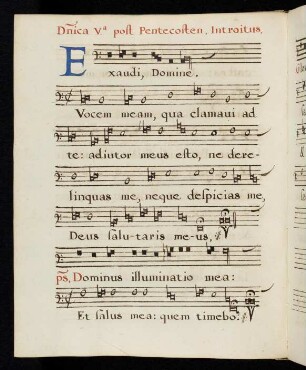 Dn̄ica Vᵃ post Pentecosten. Introitus.
Exaudi, Domine.
Vocem meam, qua clamavi ad
te: adiutor meus esto, ne dere-
linquas me, neque despicias me,
Deus salu-taris me-us,
ps, Dominus illuminatio mea:
Et salus mea: quem timebo: